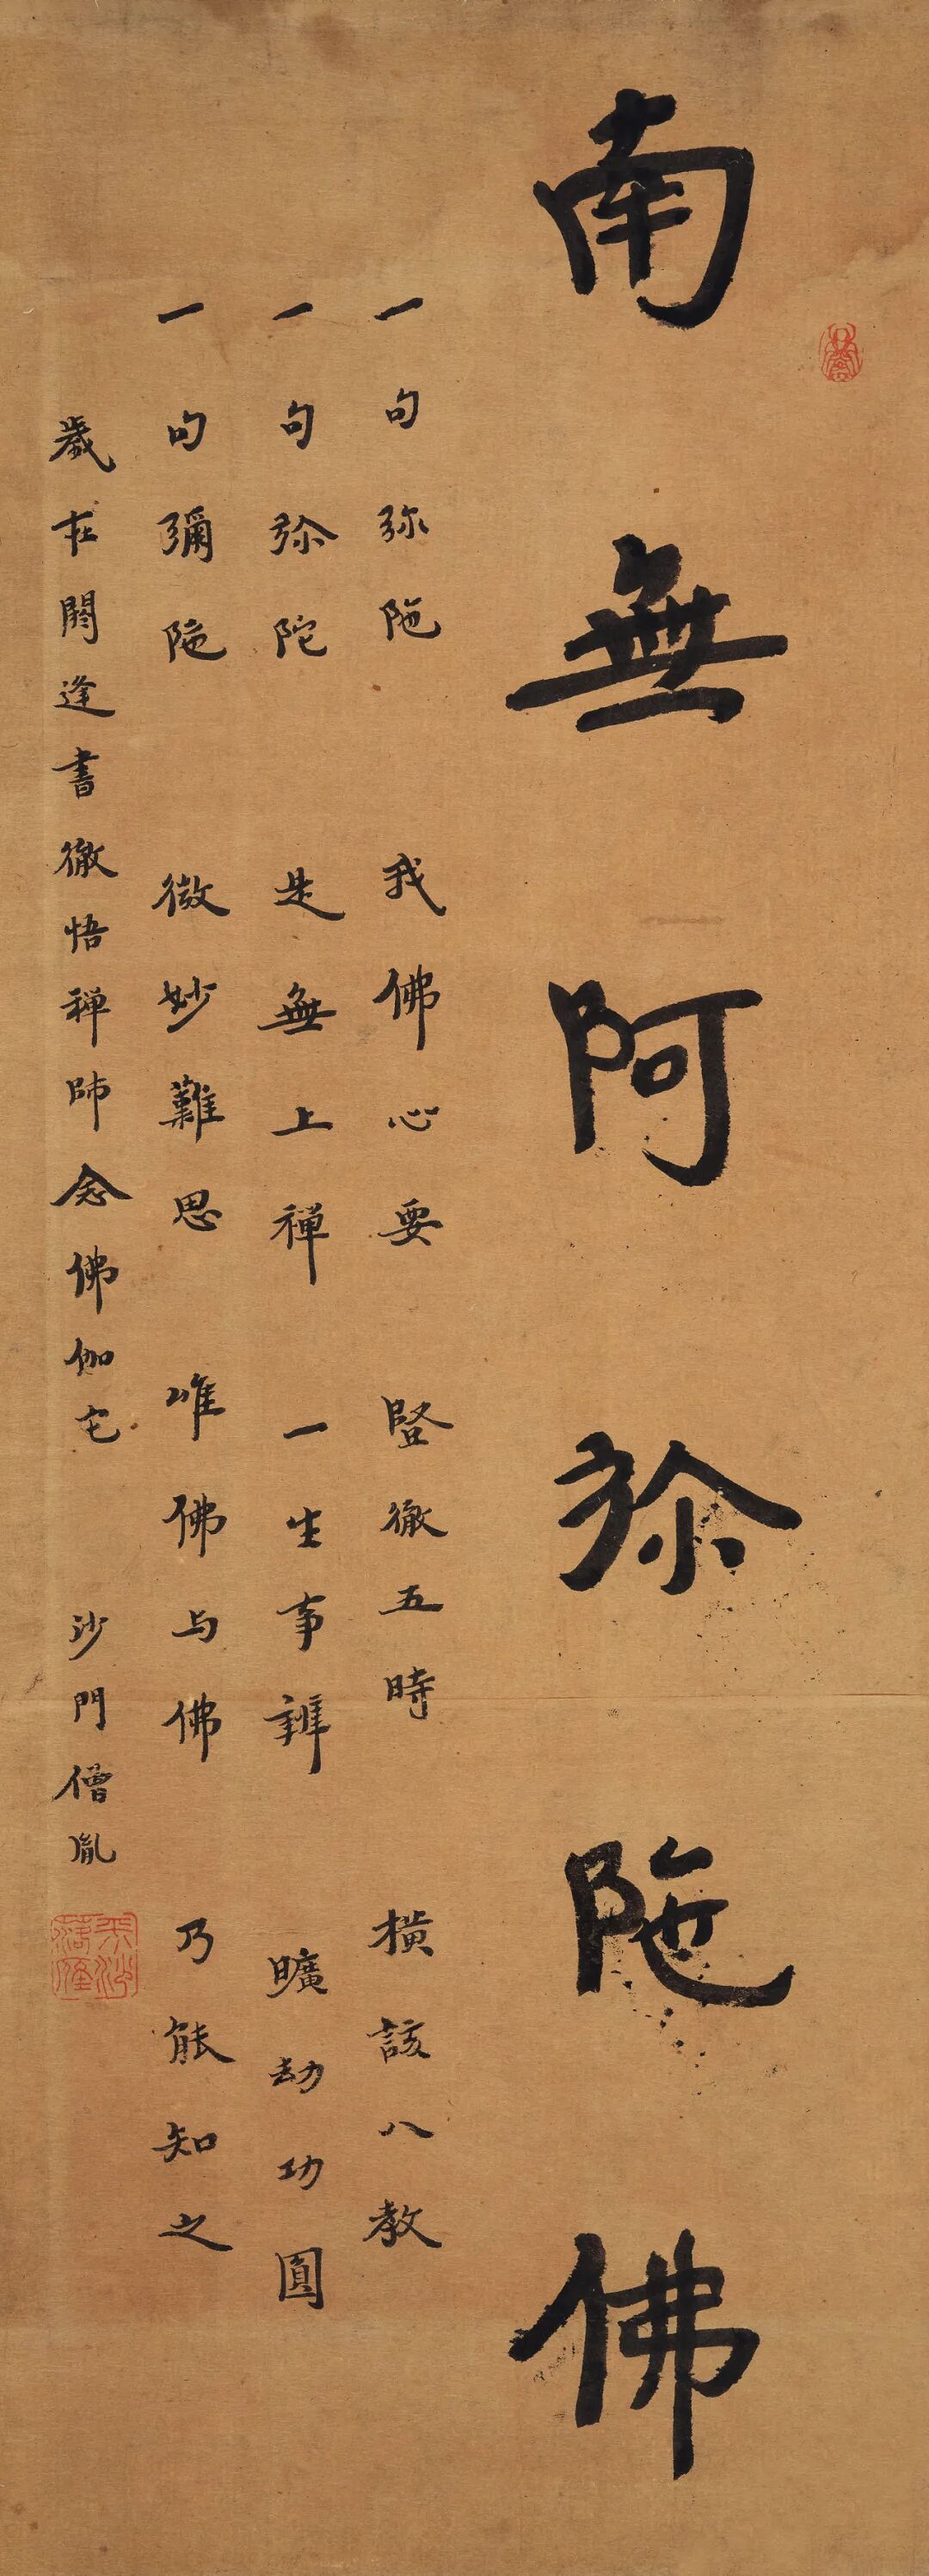 南無阿弥陁佛
一句弥陁 我佛心要 竪徹五時 横該八教
一句弥陀 是無上禪 一生事辦 曠劫功圓
一句彌陁 微妙難思 唯佛与佛 乃能知之
歲在閼逢書徹悟禅師念佛伽它 沙門僧胤